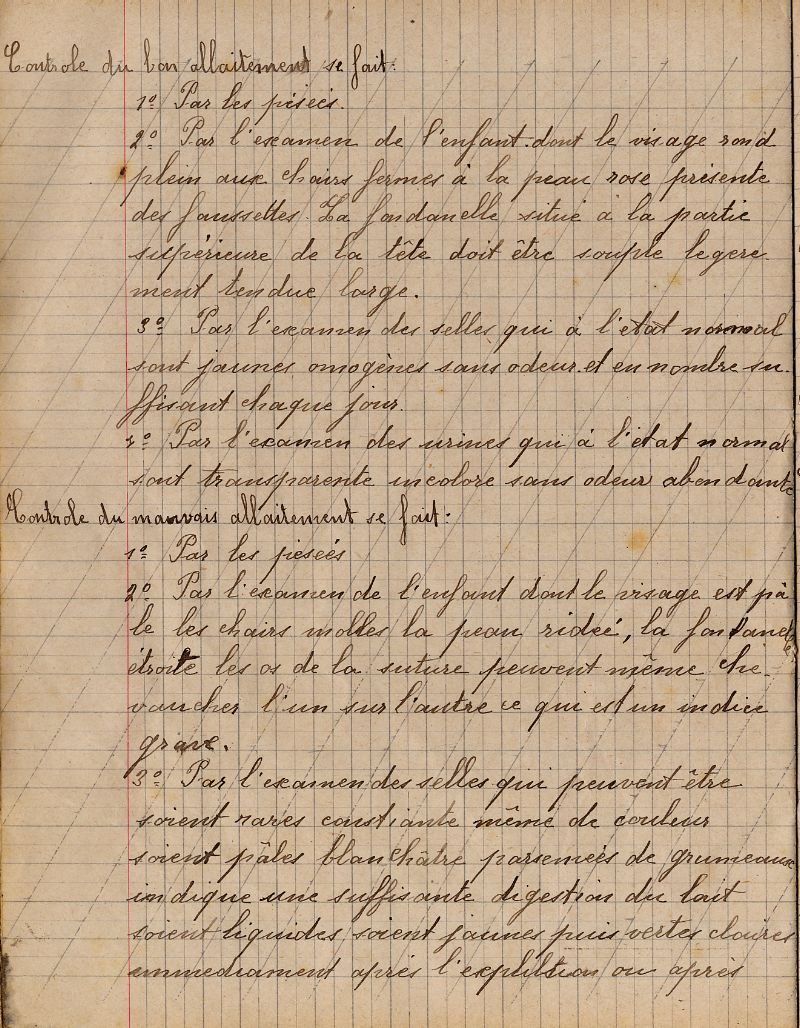 Controle du bon allaitement se fait:
1º Par les péseés.
2º Par l'examen de l'enfant. dont le visage rond
plein aux chairs fermes à la peau rose présente
des faussettes. La fondanelle situé à la partie
supérieure de la tête doit être souple legere
ment tendue large.
3º Par l'examen des selles qui à l'état normal
sont jaunes omogènes sans odeur. et en nombre su-
ffisant chaque jour.
4º Par l'examen des urines qui à l'état normal
sont transparente incolore sans odeur abondante
Controle du mauvais allaitement se fait:
1º Par les peseés
2º Par l'examen de l'enfant dont le visage est pâ
le les chairs molles la peau rideé, la fontanelle
étroite les os de la suture peuvent même che-
vaucher l'un sur l'autre ce qui est un indice
grave.
3º Par l'examen des selles qui peuvent être
soient rares constiante même de couleur
soient pâles blanchâtre parsemeés de grumeaux
indique une suffisante digestion du lait
soient liquides soient jaunes puis vertes claires
après l'expultion ou après